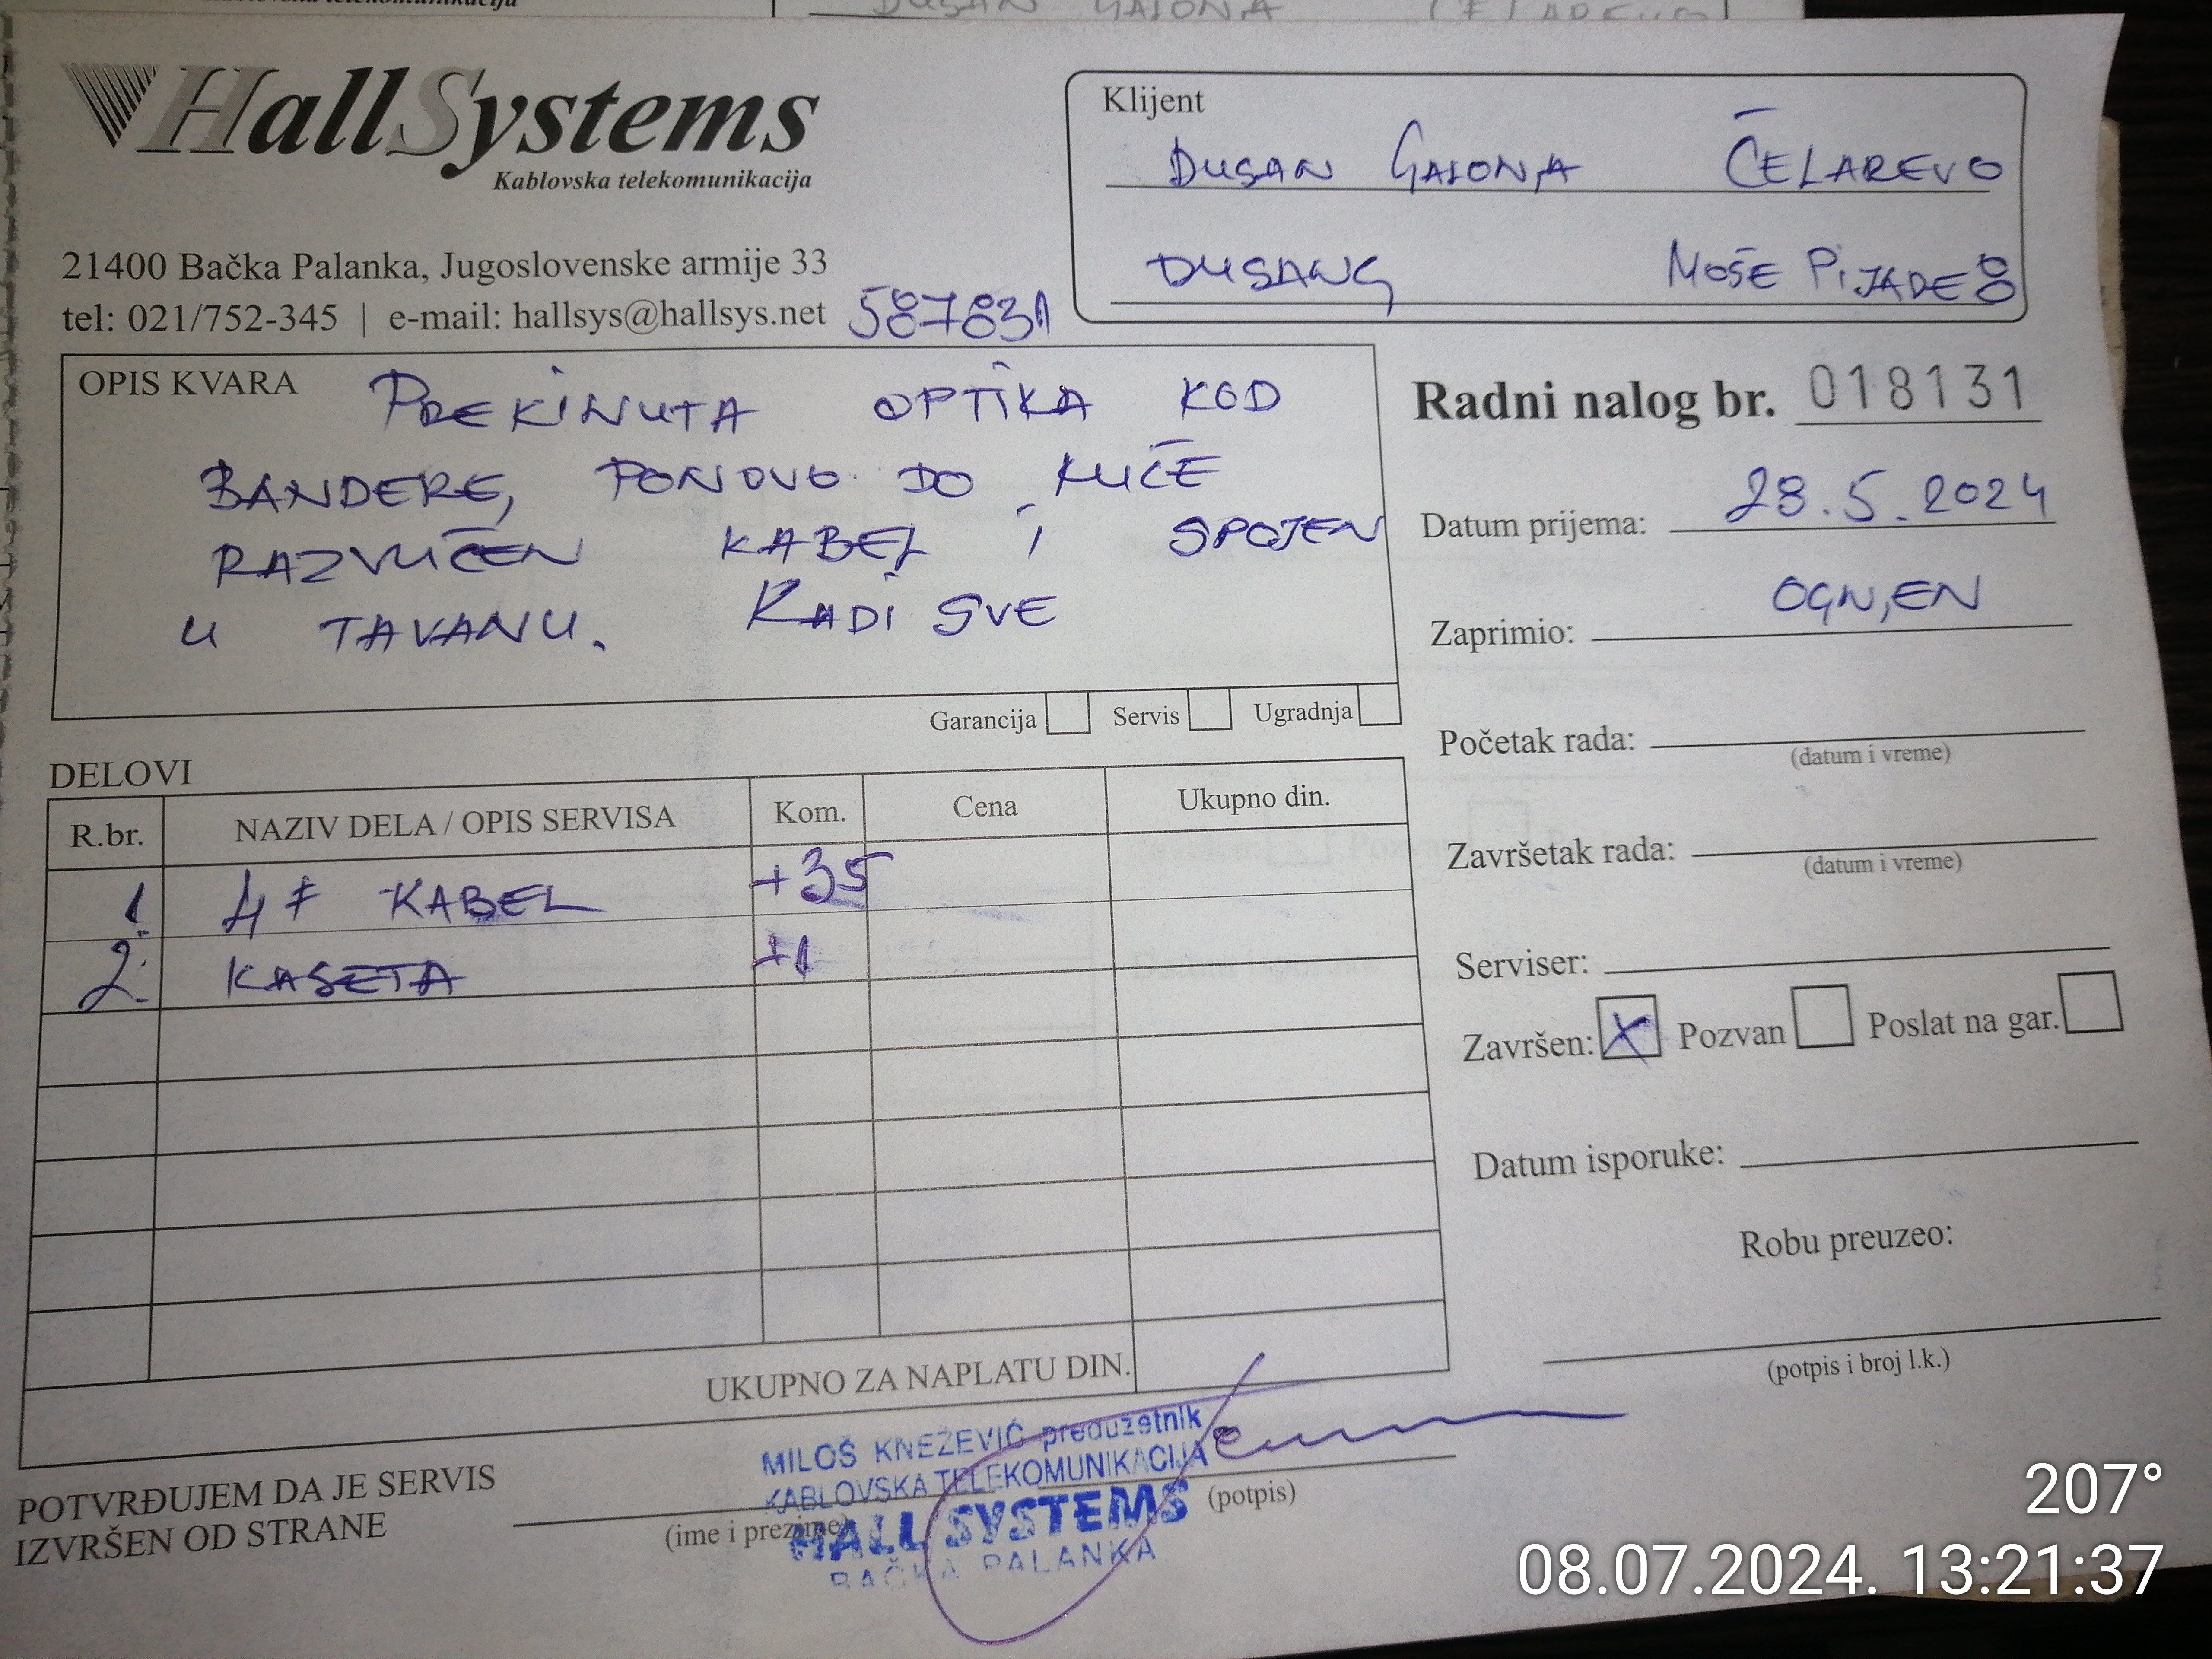 DUSAN GAJONA ČELAREVO
HallSystems
Kablovska telekomunikacija
21400 Bačka Palanka, Jugoslovenske armije 33
tel: 021/752-345 | e-mail: hallsys@hallsys.net
587831
Klijent
DUSAN GAJONA ČELAREVO
DUSANG MOŠE PIJADE 8
OPIS KVARA PREKINUTA OPTIKA KOD
BANDERE, PONOVO DO KUČE
RAZVUČEN KABEL I SPOJEN
U TAVANU. RADI SVE
Garancija Servis Ugradnja
Radni nalog br. 018131
Datum prijema: 28.5.2024
Zaprimio: OGNJEN
Početak rada:
(datum i vreme)
Završetak rada:
(datum i vreme)
Serviser:
Završen: X Pozvan Poslat na gar.
Datum isporuke:
Robu preuzeo:
(potpis i broj l.k.)
DELOVI
R.br. NAZIV DELA / OPIS SERVISA Kom. Cena Ukupno din.
1. 4F KABEL +35
2. KASETA +1
UKUPNO ZA NAPLATU DIN.
POTVRĐUJEM DA JE SERVIS
IZVRŠEN OD STRANE
(ime i prezime)
(potpis)
MILOŠ KNEŽEVIĆ preduzetnik
KABLOVSKA TELEKOMUNIKACIJA
HALL SYSTEMS
BAČKA PALANKA
207°
08.07.2024. 13:21:37